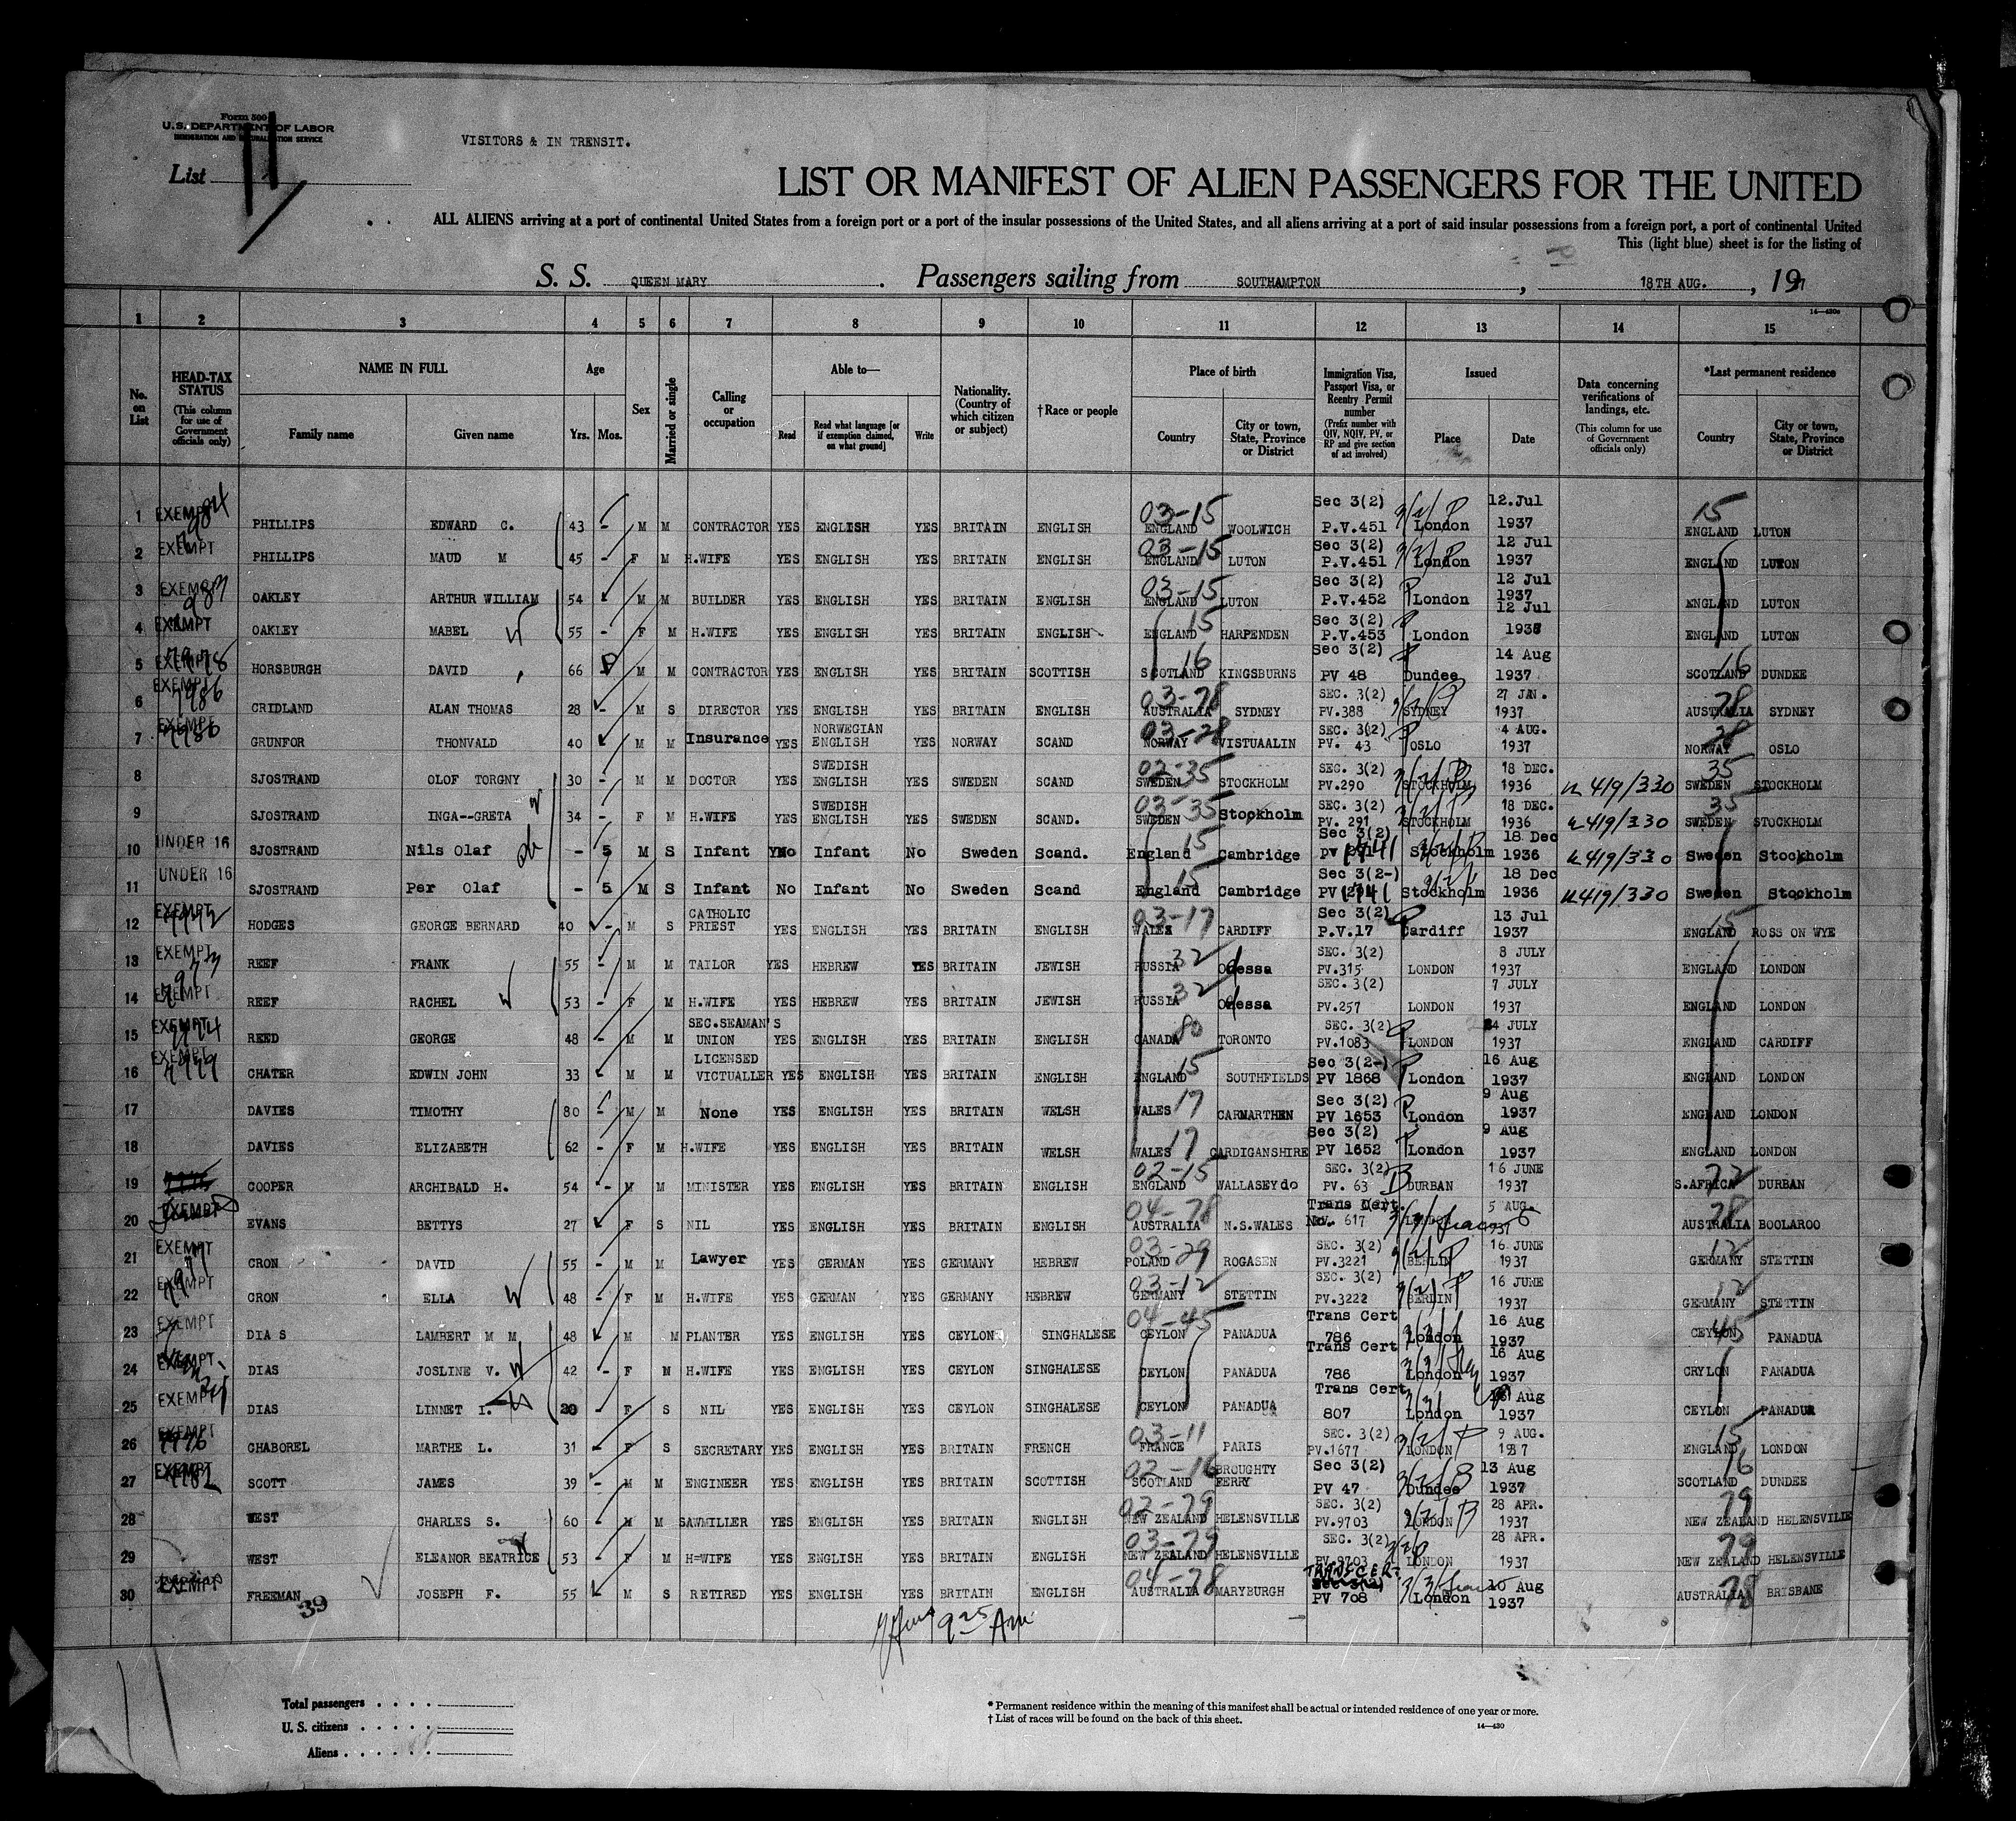 Form 500
U.S. DEPARTMENT OF LABOR
IMMIGRATION AND NATURALIZATION SERVICE
VISITORS & IN TRENSIT.
List 11
LIST OR MANIFEST OF ALIEN PASSENGERS FOR THE UNITED
ALL ALIENS arriving at a port of continental United States from a foreign port or a port of the insular possessions of the United States, and all aliens arriving at a port of said insular possessions from a foreign port, a port of continental United
This (light blue) sheet is for the listing of
S. S. QUEEN MARY. Passengers sailing from SOUTHAMPTON, 18TH AUG., 19
14—430
1 2 3 4 5 6 7 8 9 10 11 12 13 14 15
No. on List
HEAD-TAX STATUS (This column for use of Government officials only)
NAME IN FULL Family name Given name
Age Yrs. Mos.
Sex
Married or single
Calling or occupation
Able to— Read Read what language [or if exemption claimed, on what ground] Write
Nationality. (Country of which citizen or subject)
†Race or people
Place of birth Country City or town, State, Province or District
Immigration Visa, Passport Visa, or Reentry Permit number (Prefix number with QIV, NQIV, PV, or RP and give section of act involved)
Issued Place Date
Data concerning verifications of landings, etc. (This column for use of Government officials only)
*Last permanent residence Country City or town, State, Province or District
1 EXEMPT PHILLIPS EDWARD C. 43 - M M CONTRACTOR YES ENGLISH YES BRITAIN ENGLISH 03-15 ENGLAND WOOLWICH Sec 3(2) P.V.451 London 12.Jul 1937 15 ENGLAND LUTON
2 EXEMPT PHILLIPS MAUD M 45 - F M H.WIFE YES ENGLISH YES BRITAIN ENGLISH 03-15 ENGLAND LUTON Sec 3(2) P.V.451 London 12 Jul 1937 ENGLAND LUTON
3 EXEMPT OAKLEY ARTHUR WILLIAM 54 M M BUILDER YES ENGLISH YES BRITAIN ENGLISH 03-15 ENGLAND LUTON Sec 3(2) P.V.452 London 12 Jul 1937 ENGLAND LUTON
4 EXEMPT OAKLEY MABEL 55 - F M H.WIFE YES ENGLISH YES BRITAIN ENGLISH 15 ENGLAND HARPENDEN Sec 3(2) P.V.453 London 12 Jul 1938 ENGLAND LUTON
5 EXEMPT 7978 HORSBURGH DAVID 66 M M CONTRACTOR YES ENGLISH YES BRITAIN SCOTTISH 16 SCOTLAND KINGSBURNS Sec 3(2) PV 48 Dundee 14 Aug 1937 16 SCOTLAND DUNDEE
6 EXEMPT 7986 CRIDLAND ALAN THOMAS 28 - M S DIRECTOR YES ENGLISH YES BRITAIN ENGLISH 03-78 AUSTRALIA SYDNEY SEC. 3(2) PV.388 SYDNEY 27 JAN. 1937 78 AUSTRALIA SYDNEY
7 EXEMPT GRUNFOR THONVALD 40 M M Insurance YES NORWEGIAN ENGLISH YES NORWAY SCAND 03-28 NORWAY VISTUAALIN SEC. 3(2) PV. 43 OSLO 4 AUG. 1937 28 NORWAY OSLO
8 SJOSTRAND OLOF TORGNY 30 - M M DOCTOR YES SWEDISH ENGLISH YES SWEDEN SCAND 02-35 SWEDEN STOCKHOLM SEC. 3(2) PV.290 STOCKHOLM 18 DEC. 1936 419/330 35 SWEDEN STOCKHOLM
9 SJOSTRAND INGA--GRETA 34 - F M H.WIFE YES SWEDISH ENGLISH YES SWEDEN SCAND. 03-35 SWEDEN Stockholm SEC. 3(2) PV. 291 STOCKHOLM 18 DEC. 1936 419/330 35 SWEDEN STOCKHOLM
10 UNDER 16 SJOSTRAND Nils Olaf - 5 M S Infant No Infant No Sweden Scand. 15 England Cambridge Sec 3(2) PV Stockholm 18 Dec 1936 419/330 Sweden Stockholm
11 UNDER 16 SJOSTRAND Per Olaf - 5 M S Infant No Infant No Sweden Scand 15 England Cambridge Sec 3(2-) PV Stockholm 18 Dec 1936 419/330 Sweden Stockholm
12 EXEMPT HODGES GEORGE BERNARD 40 - M S CATHOLIC PRIEST YES ENGLISH YES BRITAIN ENGLISH 03-17 WALES CARDIFF Sec 3(2) P.V.17 Cardiff 13 Jul 1937 15 ENGLAND ROSS ON WYE
13 EXEMPT REEF FRANK 55 - M M TAILOR YES HEBREW YES BRITAIN JEWISH 32 RUSSIA Odessa SEC. 3(2) PV.315 LONDON 8 JULY 1937 ENGLAND LONDON
14 EXEMPT REEF RACHEL 53 - F M H.WIFE YES HEBREW YES BRITAIN JEWISH 32 RUSSIA Odessa SEC. 3(2) PV.257 LONDON 7 JULY 1937 ENGLAND LONDON
15 EXEMPT REED GEORGE 48 - M M SEC.SEAMAN'S UNION YES ENGLISH YES BRITAIN ENGLISH 80 CANADA TORONTO SEC. 3(2) PV.1083 LONDON JULY 1937 ENGLAND CARDIFF
16 EXEMPT CHATER EDWIN JOHN 33 M M LICENSED VICTUALLER YES ENGLISH YES BRITAIN ENGLISH 15 ENGLAND SOUTHFIELDS Sec 3(2-) PV 1868 London 16 Aug 1937 ENGLAND LONDON
17 DAVIES TIMOTHY 80 - M M None YES ENGLISH YES BRITAIN WELSH WALES 17 CARMARTHEN Sec 3(2) PV 1653 London 9 Aug 1937 ENGLAND LONDON
18 DAVIES ELIZABETH 62 - F M H.WIFE YES ENGLISH YES BRITAIN WELSH WALES 17 CARDIGANSHIRE Sec 3(2) PV 1652 London 9 Aug 1937 ENGLAND LONDON
19 COOPER ARCHIBALD H. 54 - M M MINISTER YES ENGLISH YES BRITAIN ENGLISH 02-15 ENGLAND WALLASEY do SEC. 3(2) PV. 63 DURBAN 16 JUNE 1937 72 S.AFRICA DURBAN
20 EXEMPT EVANS BETTYS 27 F S NIL YES ENGLISH YES BRITAIN ENGLISH 04-78 AUSTRALIA N.S.WALES Trans Cert. No. 617 LONDON 5 AUG. 1937 78 AUSTRALIA BOOLAROO
21 EXEMPT CRON DAVID 55 - M M Lawyer YES GERMAN YES GERMANY HEBREW 03-29 POLAND ROGASEN SEC. 3(2) PV.3221 BERLIN 16 JUNE 1937 12 GERMANY STETTIN
22 EXEMPT CRON ELLA 48 - F M H.WIFE YES GERMAN YES GERMANY HEBREW 03-12 GERMANY STETTIN SEC. 3(2) PV.3222 BERLIN 16 JUNE 1937 12 GERMANY STETTIN
23 EXEMPT DIAS LAMBERT M M 48 M M PLANTER YES ENGLISH YES CEYLON SINGHALESE 04-45 CEYLON PANADUA Trans Cert 786 London 16 Aug 1937 45 CEYLON PANADUA
24 EXEMPT DIAS JOSLINE V. 42 - F M H.WIFE YES ENGLISH YES CEYLON SINGHALESE CEYLON PANADUA Trans Cert 786 London 16 Aug 1937 CRYLON PANADUA
25 EXEMPT DIAS LINNET I. 20 F S NIL YES ENGLISH YES CEYLON SINGHALESE CEYLON PANADUA Trans Cert 807 London Aug 1937 CEYLON PANADUA
26 EXEMPT 7976 CHABOREL MARTHE L. 31 F S SECRETARY YES ENGLISH YES BRITAIN FRENCH 03-11 FRANCE PARIS SEC. 3(2) PV.1677 LONDON 9 AUG. 1937 15 ENGLAND LONDON
27 EXEMPT 7982 SCOTT JAMES 39 - M M ENGINEER YES ENGLISH YES BRITAIN SCOTTISH 02-16 SCOTLAND BROUGHTY FERRY Sec 3(2) PV 47 Dundee 13 Aug 1937 16 SCOTLAND DUNDEE
28 WEST CHARLES S. 60 - M M SAWMILLER YES ENGLISH YES BRITAIN ENGLISH 02-79 NEW ZEALAND HELENSVILLE SEC. 3(2) PV.9703 LONDON 28 APR. 1937 79 NEW ZEALAND HELENSVILLE
29 WEST ELEANOR BEATRICE 53 - F M H=WIFE YES ENGLISH YES BRITAIN ENGLISH 03-79 NEW ZEALAND HELENSVILLE SEC. 3(2) PV.9703 LONDON 28 APR. 1937 79 NEW ZEALAND HELENSVILLE
30 EXEMPT FREEMAN JOSEPH F. 55 M S RETIRED YES ENGLISH YES BRITAIN ENGLISH 04-78 AUSTRALIA MARYBURGH TRANSCER- Sec 3(2) PV 708 London 10 Aug 1937 78 AUSTRALIA BRISBANE
39
9 25 Am
Total passengers
U. S. citizens
Aliens
* Permanent residence within the meaning of this manifest shall be actual or intended residence of one year or more.
† List of races will be found on the back of this sheet.
14—430